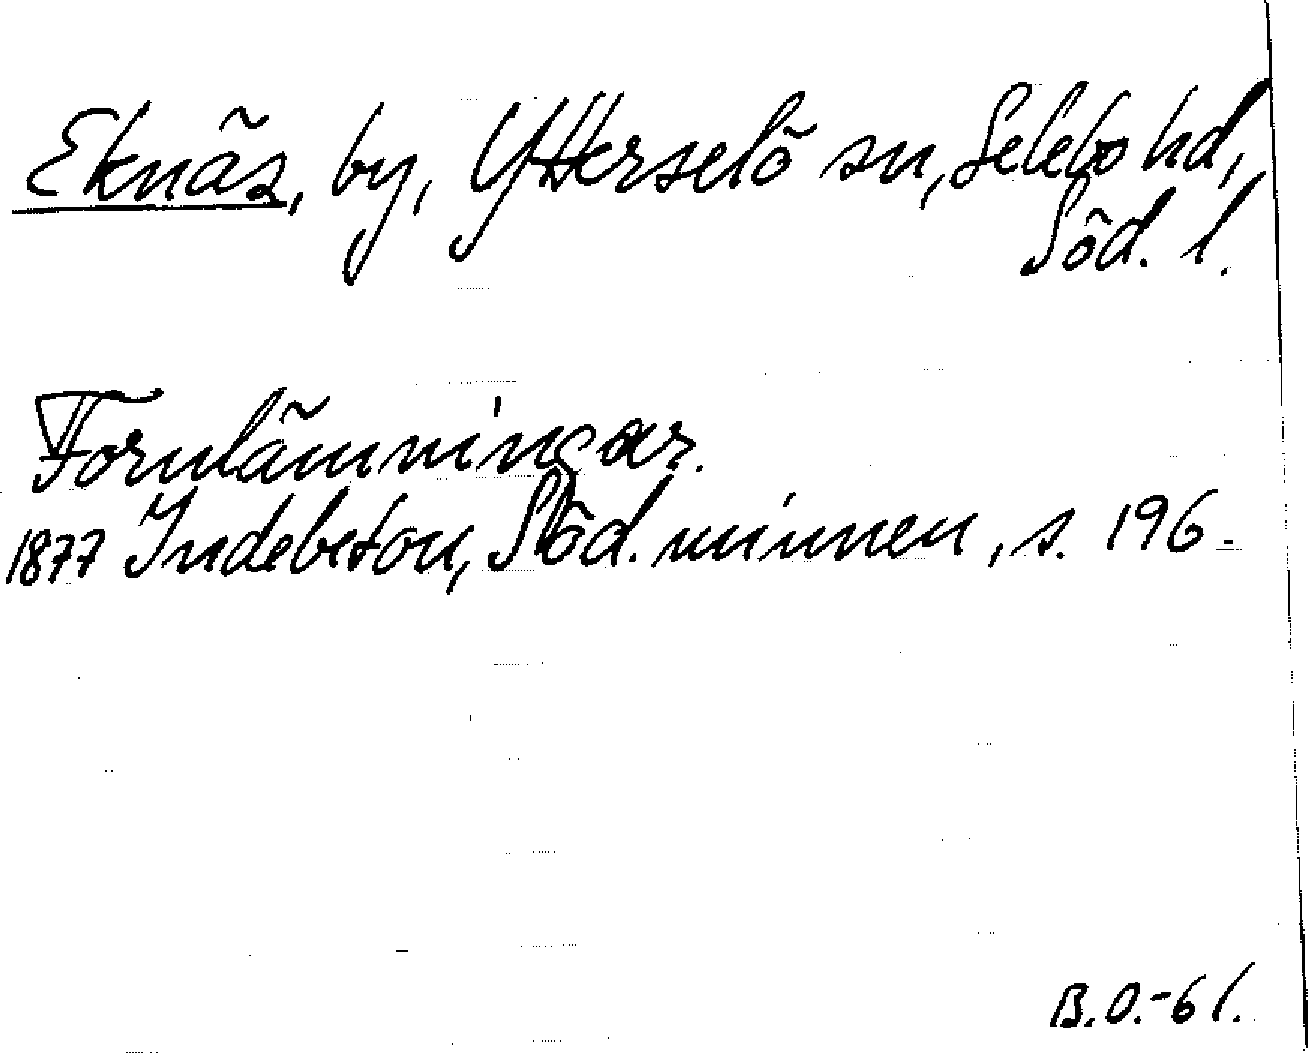 Eknäs, by, Ytterselö sn, Selebo hd,
Söd. l.
Fornlämningar.
1877 Indebetou, Söd. minnen, s. 196.
B.O.-61.